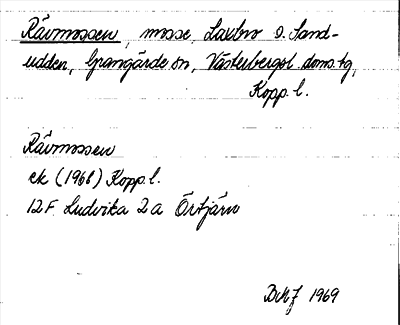 Rävmossen, mosse, Laxbro o. Sand-
udden, Grangärde sn, Västerbergsl. doms.tg,
Kopp. l.
Rävmossen
ek (1968) Kopp. l.
12F Ludvika 2a Örtjärn
1969